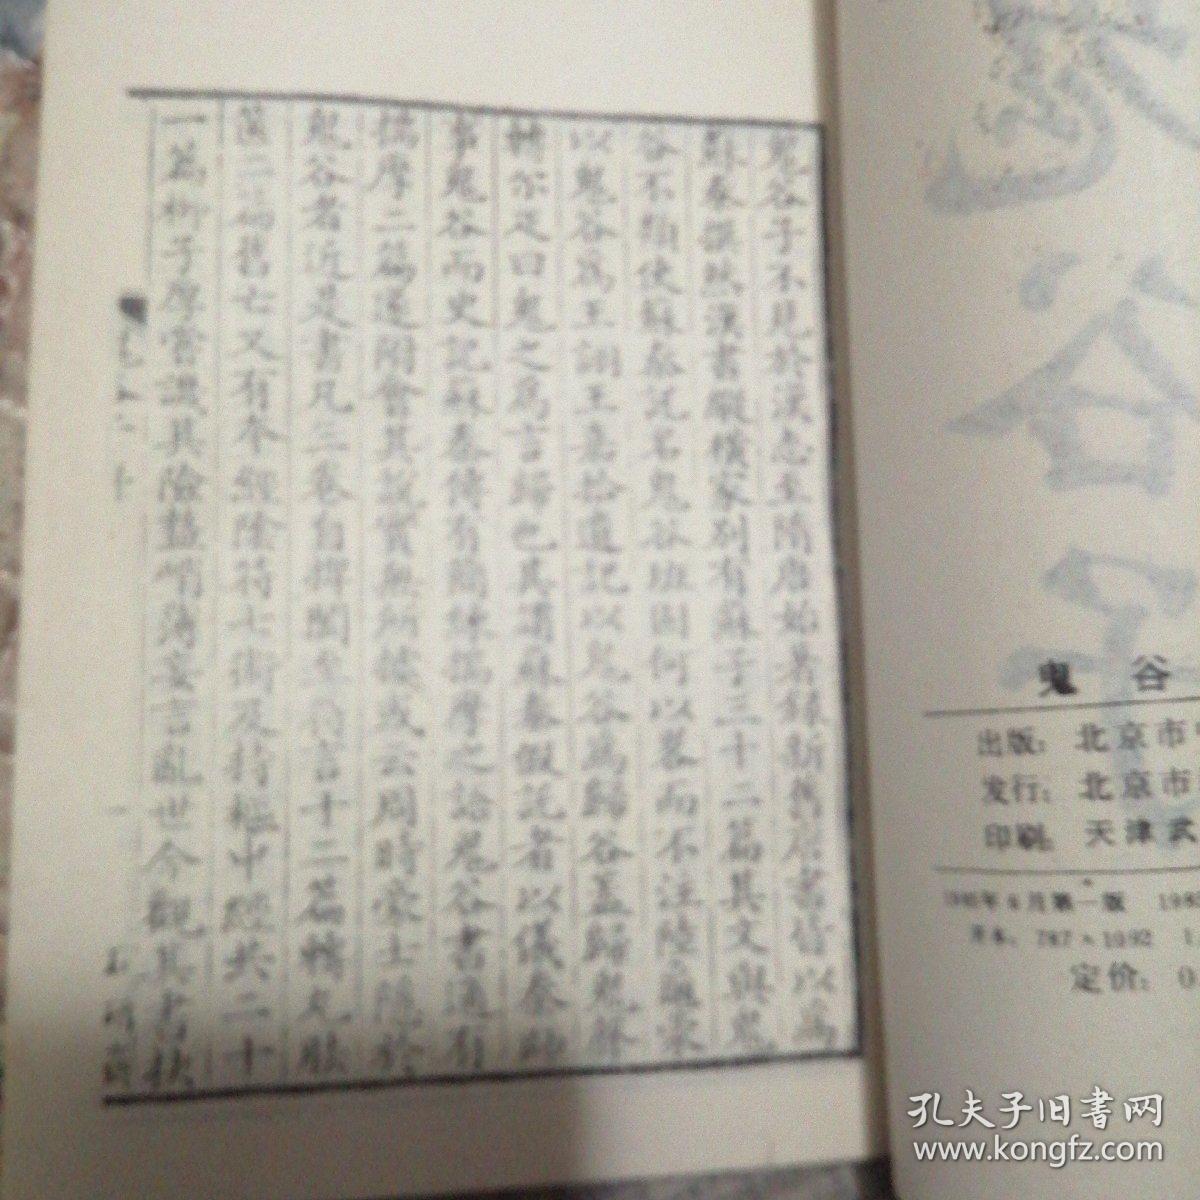 鬼谷子不見於漢志至隋唐始著錄新舊唐書皆以為
蘇秦撰然漢書縱橫家別有蘇子三十二篇其文與鬼
谷不類使蘇秦託名鬼谷班固何以畧而不注陸龜蒙
以鬼谷為王詡王嘉拾遺記以鬼谷為歸谷蓋歸鬼聲
轉尒疋曰鬼之為言歸也其謂蘇秦假託者以儀秦師
事鬼谷而史記蘇秦傳有簡練揣摩之語鬼谷書適有
揣摩二篇遂附會其說實無所據或云周時豪士隱於
鬼谷者近是書凡三卷自捭闔至符言十二篇轉丸胠
篋二篇舊亡又有本經陰符七術及持樞中經共二十
一篇柳子厚嘗譏其險盭峭薄妄言亂世今觀其書抉
谷子
鬼 谷
出版：北京市中
发行：北京市
印刷：天津武
1985年6月第一版 198
开本：787×1092 1
定价：0
孔夫子旧书网
www.kongfz.com